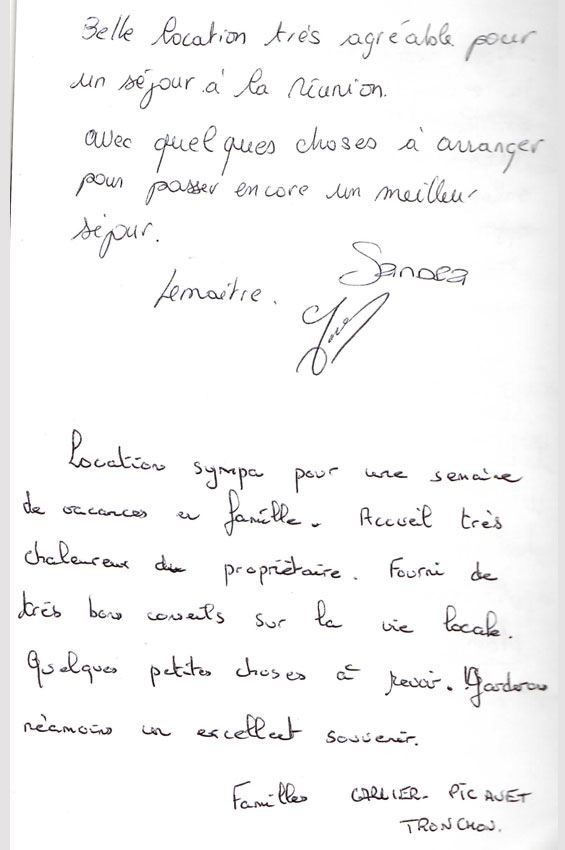 Belle location très agréable pour
un séjour à la réunion.
avec quelques choses à arranger
pour passer encore un meilleur
séjour.
Sandra
Lemaitre.
Location sympa pour une semaine
de vacances en famille. Accueil très
chaleureux du propriétaire. Fourni de
très bons conseils sur la vie locale.
Quelques petites choses à revoir. Garderons
néamoins un excellent souvenir.
Familles CARLIER- PICAVET
TRONCHON.